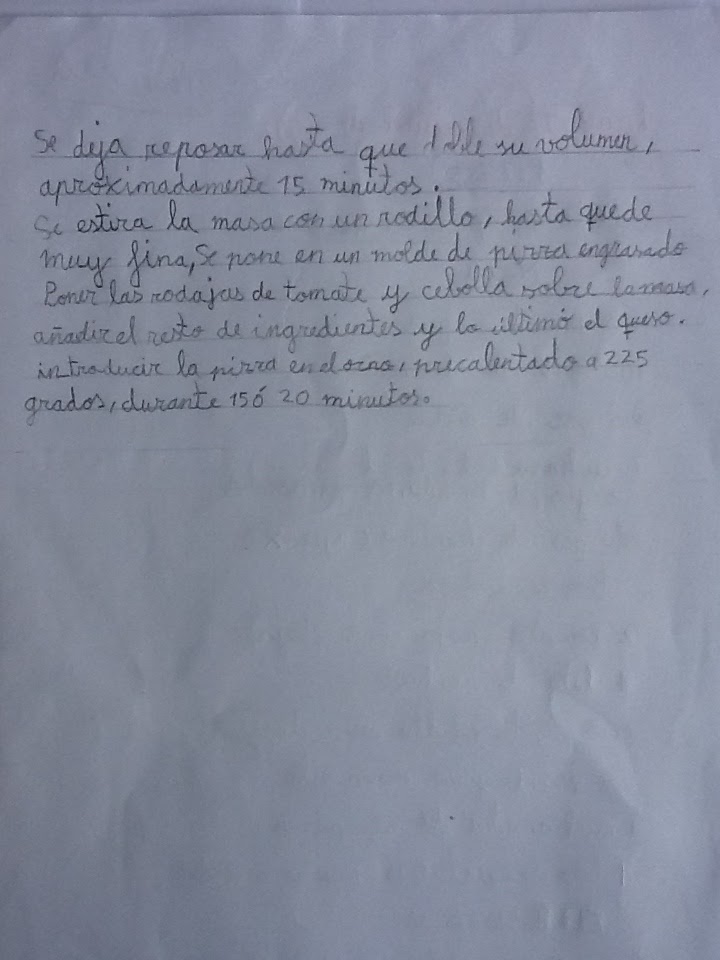 Se deja reposar hasta que doble su volumen,
aproximadamente 15 minutos.
Se estira la masa con un rodillo, hasta quede
muy fina, Se pone en un molde de pizza engrasado
Poner las rodajas de tomate y cebolla sobre la masa,
añadir el resto de ingredientes y lo último el queso.
introducir la pizza en el orno, precalentado a 225
grados, durante 15 ó 20 minutos.